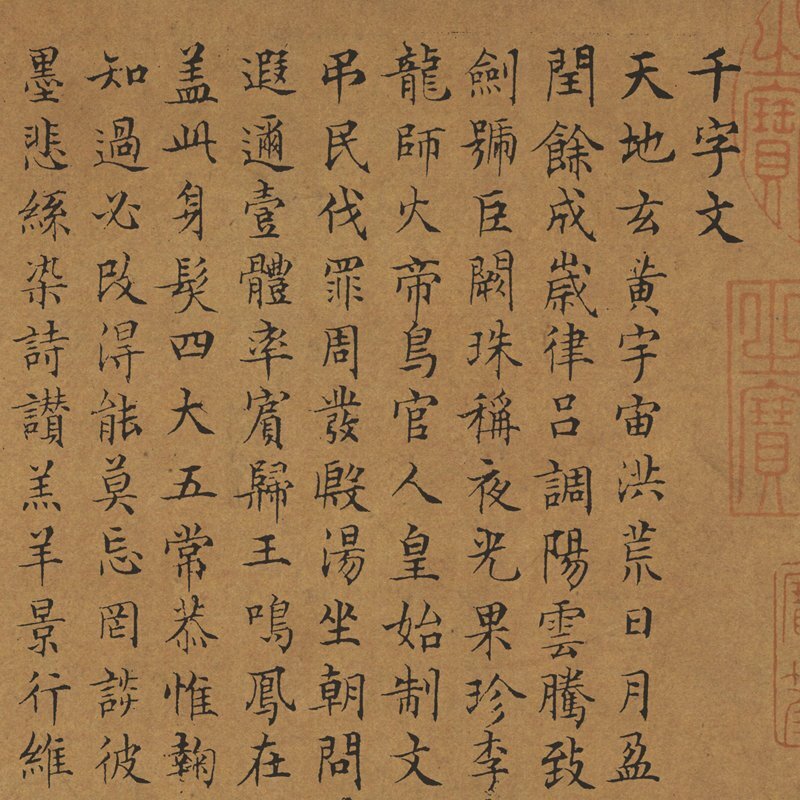 千字文
天地玄黄宇宙洪荒日月盈
閏餘成歲律吕調陽雲騰致
劍號巨闕珠稱夜光果珍李
龍師火帝鳥官人皇始制文
吊民伐罪周發殷湯坐朝問
遐邇壹體率賓歸王鳴鳳在
盖此身髮四大五常恭惟鞠
知過必改得能莫忘罔談彼
墨悲絲染詩讃羔羊景行維